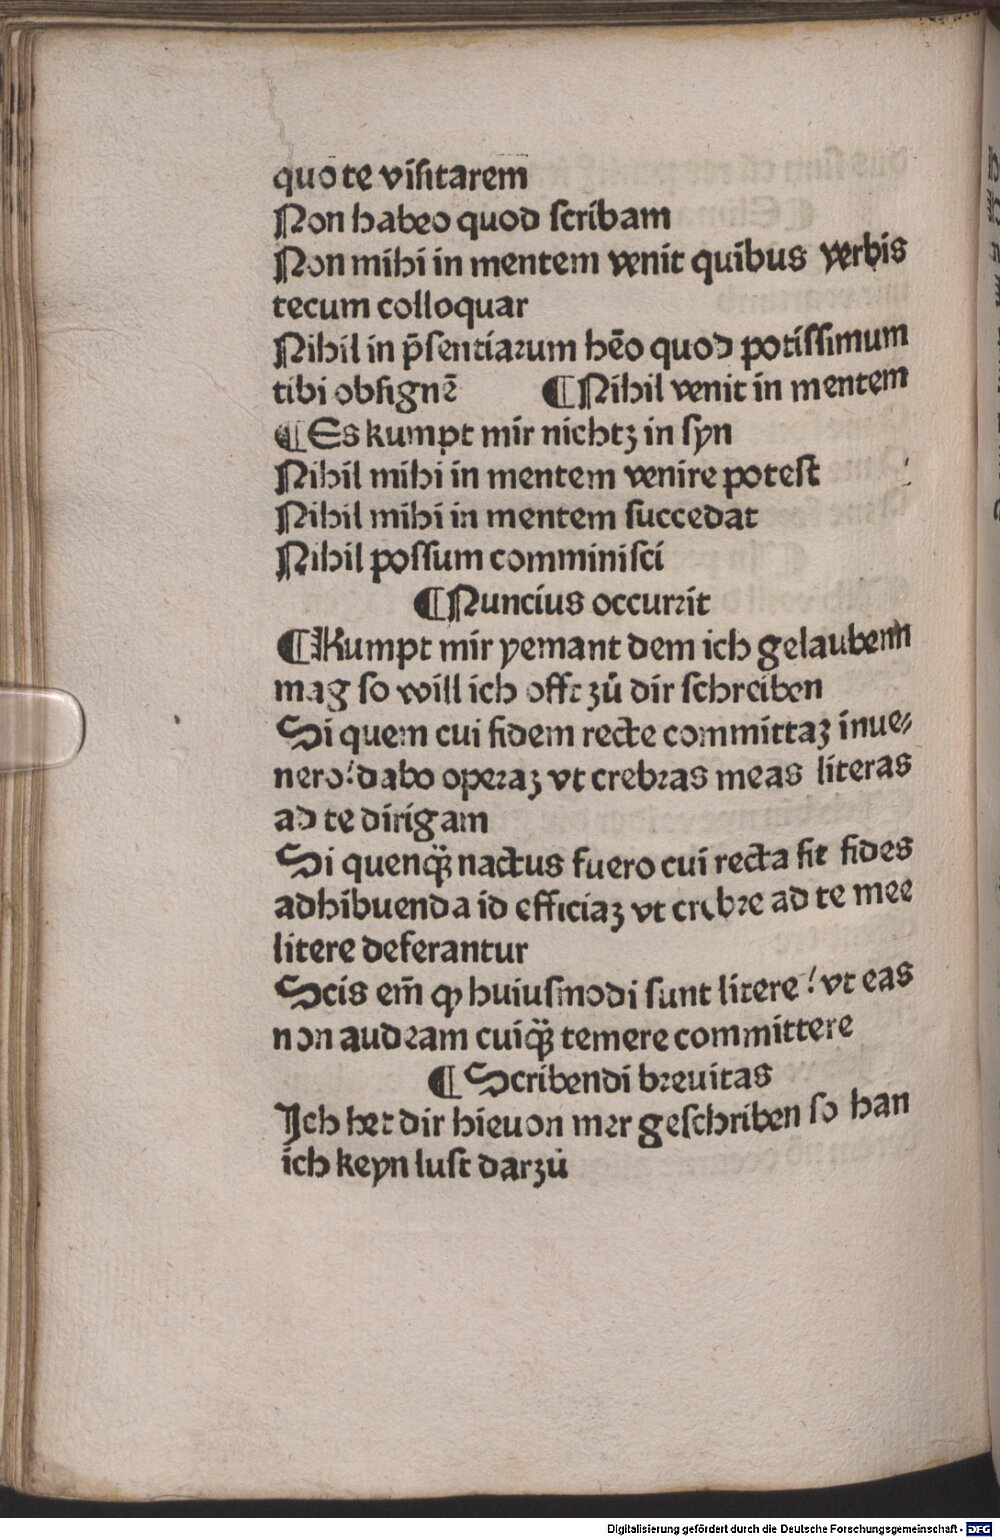 quo te visitarem
Non habeo quod scribam
Non mihi in mentem venit quibus verbis
tecum colloquar
Nihil in p̄sentiarum hēo quod potissimum
tibi obsignē ¶ Nihil venit in mentem
¶ Es kumpt mir nichtz in syn
Nihil mihi in mentem venire potest
Nihil mihi in mentem succedat
Nihil possum comminisci
¶ Nuncius occurrit
¶ Kumpt mir yemant dem ich gelaubenn
mag so will ich offt zů dir schreiben
Si quem cui fidem recte committaz inue⸗
nero: dabo operaz vt crebras meas literas
ad te dirigam
Si quenqꝫ̈ nactus fuero cui recta sit fides
adhibuenda id efficiaz vt crebre ad te mee
litere deferantur
Scis em̄ ꝙ huiusmodi sunt litere: vt eas
non audeam cuiqꝫ̈ temere committere
¶ Scribendi breuitas
Ich het dir hieuon mer geschriben so han
ich keyn lust darzů
Digitalisierung gefördert durch die Deutsche Forschungsgemeinschaft - DFG